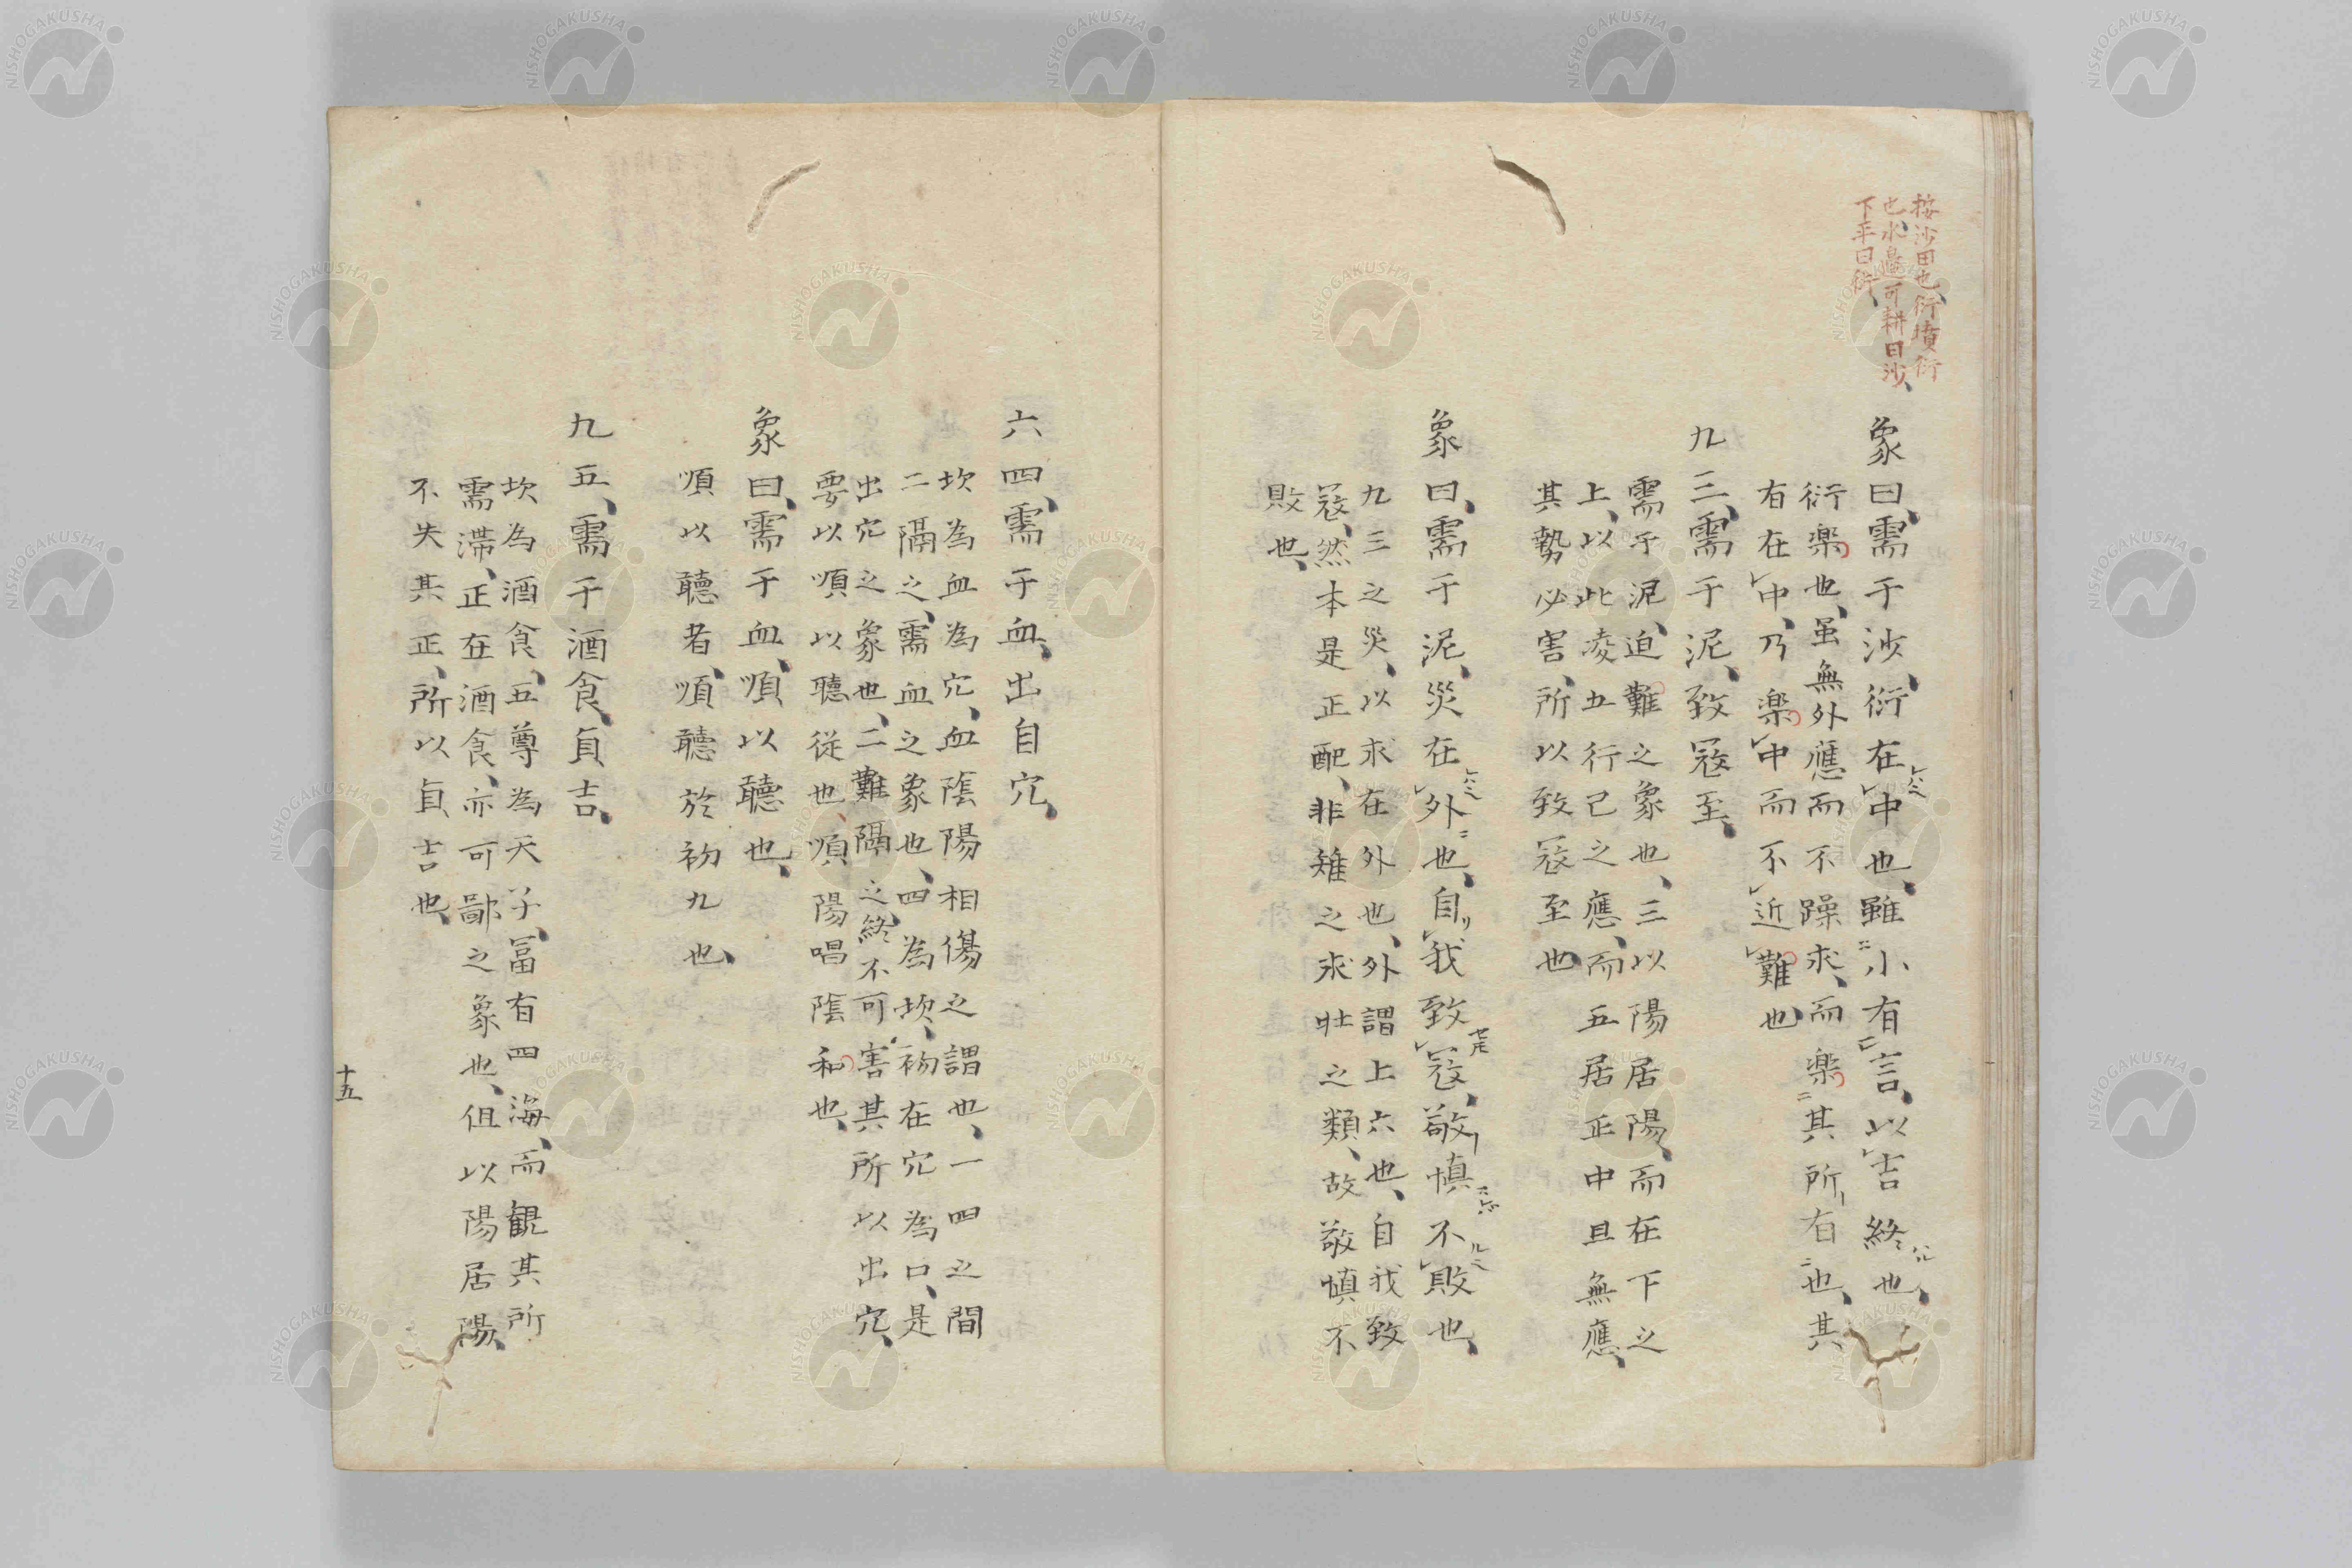 按沙田也、衍墳衍
也、水邊可耕曰沙、
下平曰衍、
象曰、需于沙、衍在中也、雖小有言、以吉終也、
衍楽也、虽無外應而不躁求、而楽其所有也、其
有在中、乃楽中而不近難也、
九三、需于泥、致冦至、
需于泥、迫難之象也、三以陽居陽、而在下之
上、以此凌五行己之應、而五居正中且無應、
其勢必害、所以致冦至也、
象曰、需于泥、災在外也、自我致冦、敬慎不敗也、
九三之災、以求在外也、外謂上六也、自我致
冦、然本是正配、非雉之求牡之類、故敬慎不
敗也、
六四、需于血、出自穴、
坎為血為穴、血陰陽相傷之謂也、一四之間
二隔之、需血之象也、四為坎、初在穴為口、是
出穴之象也、二難隔之、終不可害其所以出穴、
要以順以聽従也、順陽唱陰和也、
象曰、需于血、順以聽也、
順以聽者、順聽於初九也、
九五、需于酒食、貞吉、
坎為酒食、五尊為天子、冨有四海、而観其所
需滞、正在酒食、亦可鄙之象也、但以陽居陽、
不失其正、所以貞吉也、
十五
NISHOGAKUSHA